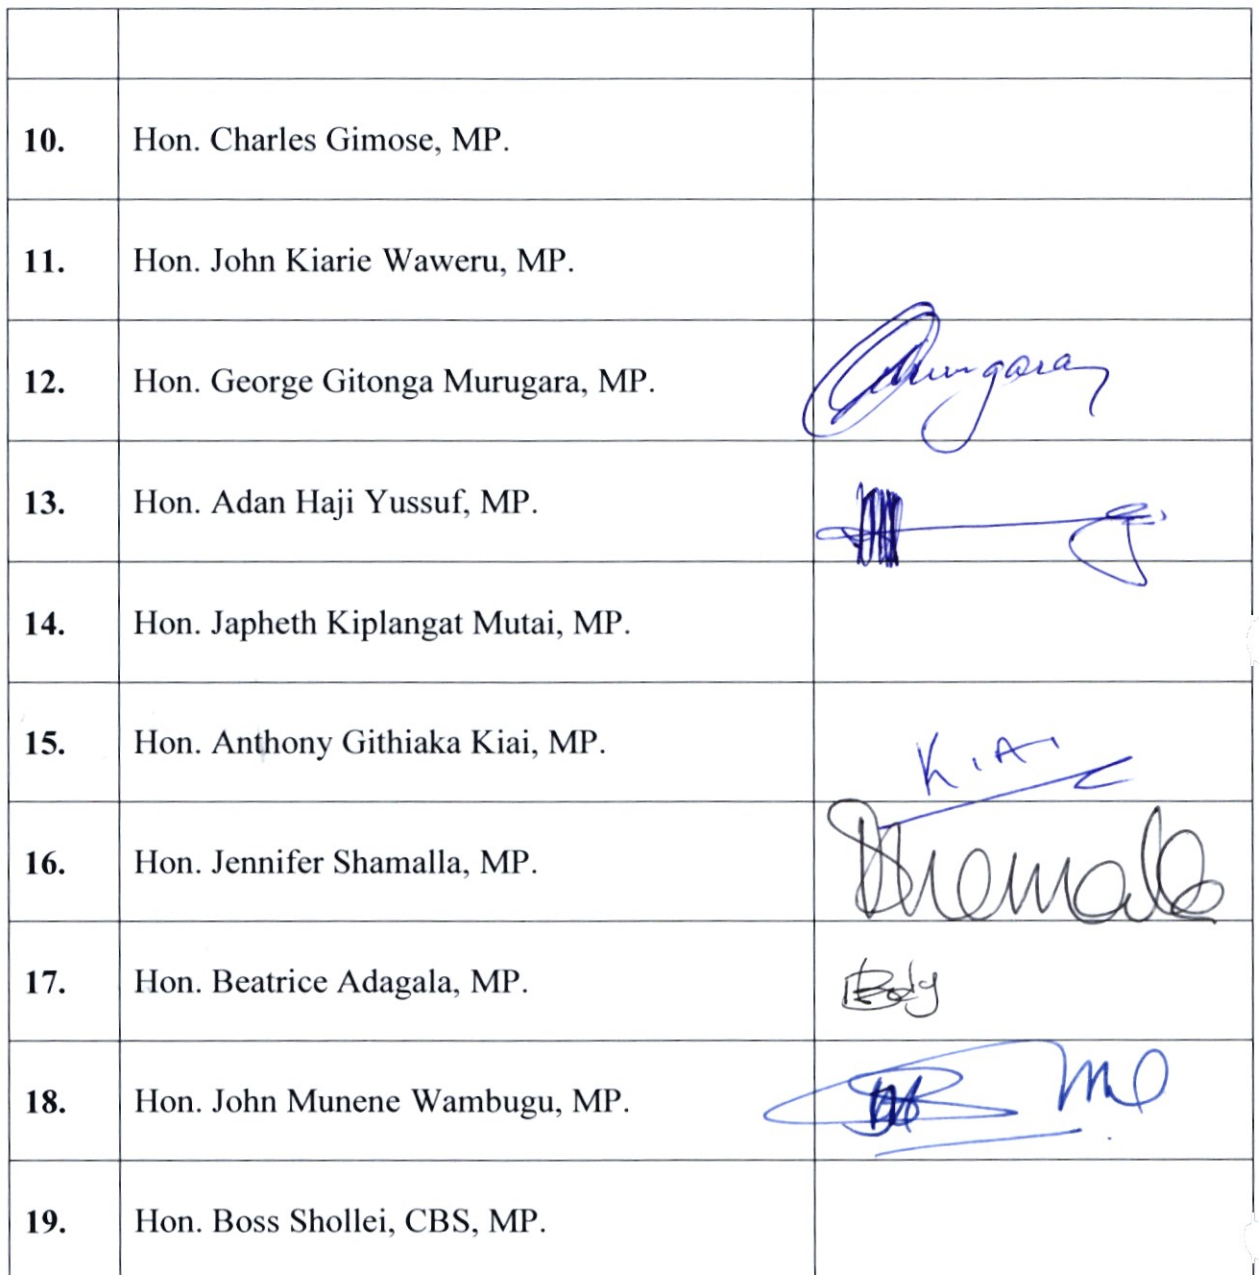 10. Hon. Charles Gimose, MP.
11. Hon. John Kiarie Waweru, MP.
12. Hon. George Gitonga Murugara, MP.
13. Hon. Adan Haji Yussuf, MP.
14. Hon. Japheth Kiplangat Mutai, MP.
15. Hon. Anthony Githiaka Kiai, MP. KIAI
16. Hon. Jennifer Shamalla, MP.
17. Hon. Beatrice Adagala, MP.
18. Hon. John Munene Wambugu, MP.
19. Hon. Boss Shollei, CBS, MP.